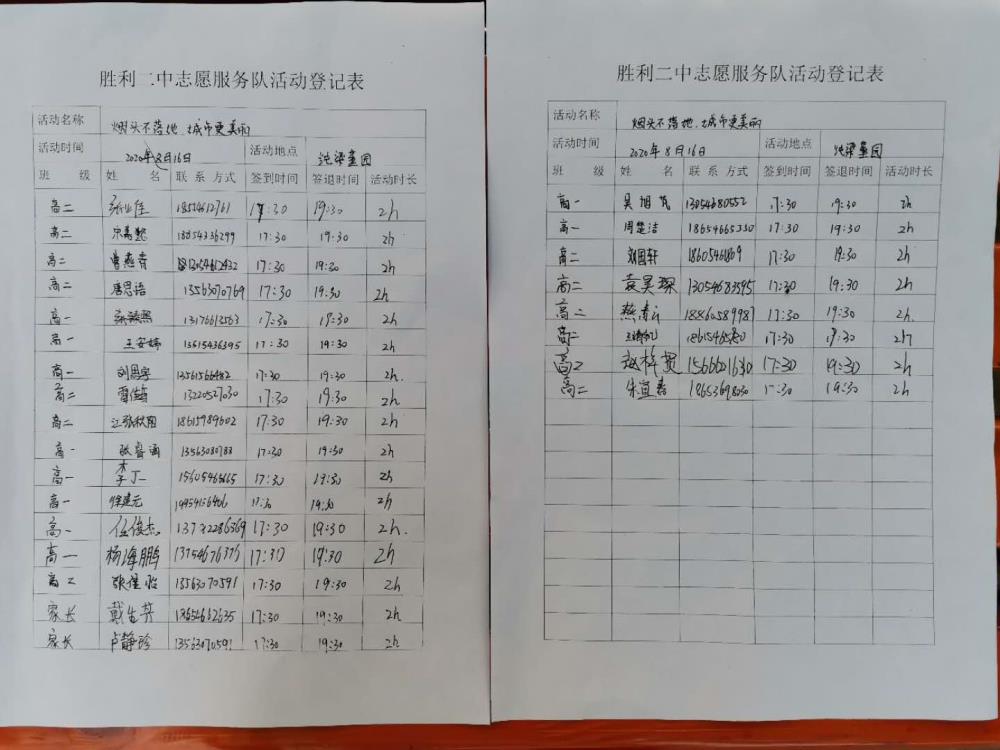 胜利二中志愿服务队活动登记表
活动名称 烟头不落地、城市更美丽
活动时间 2020年8月16日 活动地点
班 级 姓 名 联 系 方式 签到时间 签退时间 活动时长
高二 17:30 19:30 2h
高二 17:30 19:30 2h
高二 17:30 19:30 2h
高二 唐思语 13563070769 17:30 19:30 2h
高一 13176613563 17:30 19:30 2h
高一 王安婷 13615436395 17:30 19:30 2h
高一 17:30 19:30 2h.
高二 13220527030 17:30 19:30 2h
高二 江张秋园 18615989602 17:30 19:30 2h
高一 张睿涵 13563080788 17:30 19:30 2h
高一 李丁一 15605465665 17:30 19:30 2h
高一 徐建元 19954156406 17:30 19:30 2h
高一 任俊杰 17:30 19:30 2h.
高一 杨海鹏 17:30 19:30 2h
高二 13563070591 17:30 19:30 2h
家长 17:30 19:30 2h
家长 卢静珍 13563070591 17:30 19:30 2h
胜利二中志愿服务队活动登记表
活动名称 烟头不落地、城市更美丽
活动时间 2020年8月16日 活动地点
班 级 姓 名 联 系 方式 签到时间 签退时间 活动时长
高一 13054680552 17:30 19:30 2h
高一 周楚洁 18654665330 17:30 19:30 2h
高二 刘国轩 17:30 19:30 2h
高二 袁昊琛 13054683595 17:30 19:30 2h
高二 18860589987 17:30 19:30 2h.
高二 17:30 19:30 2h
高二 赵梓贺 1566621630 17:30 19:30 2h
高二 朱宜嘉 18653698030 17:30 19:30 2h